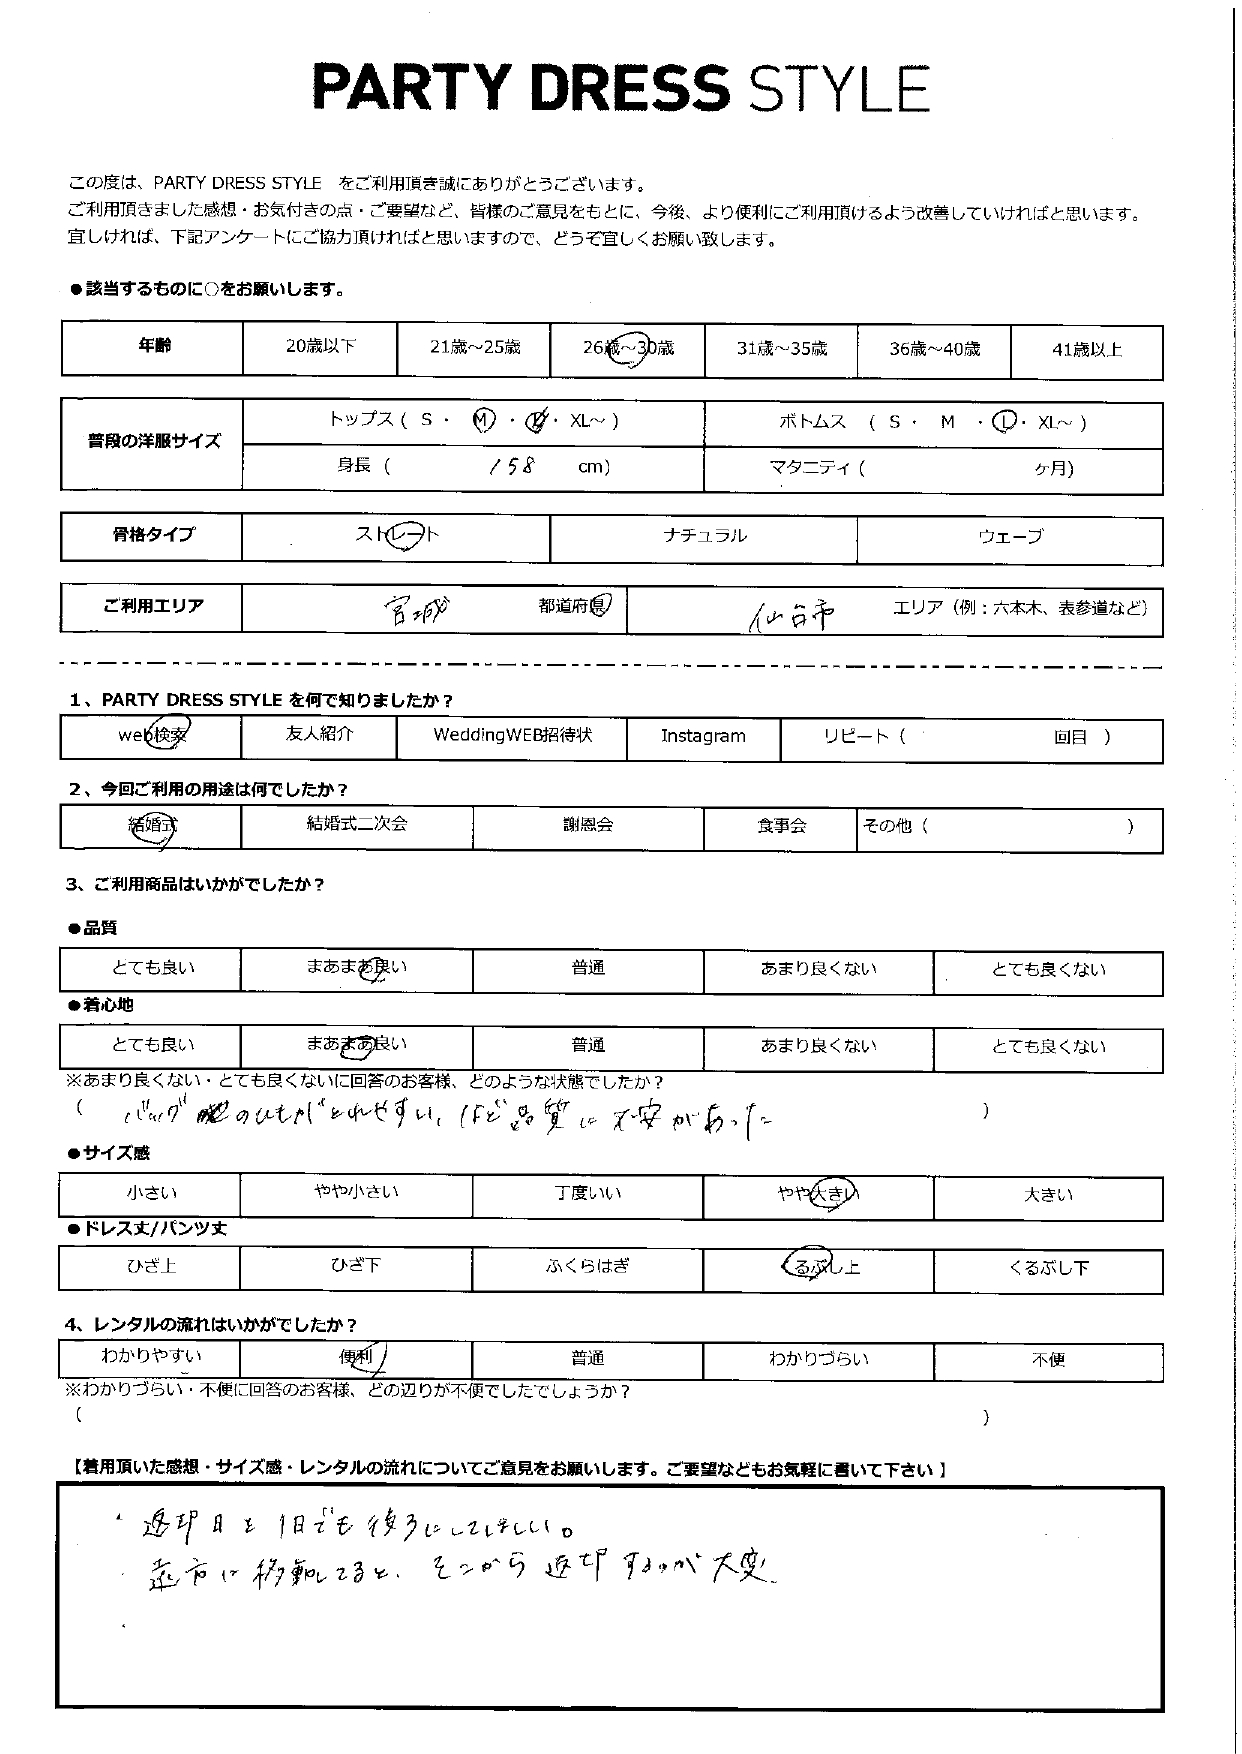 PARTY DRESS STYLE
この度は、PARTY DRESS STYLE をご利用頂き誠にありがとうございます。
ご利用頂きました感想・お気付きの点・ご要望など、皆様のご意見をもとに、今後、より便利にご利用頂けるよう改善していければと思います。
宜しければ、下記アンケートにご協力頂ければと思いますので、どうぞ宜しくお願い致します。
●該当するものに○をお願いします。
年齢 20歳以下 21歳～25歳 26歳～30歳 31歳～35歳 36歳～40歳 41歳以上
普段の洋服サイズ トップス ( S ・ M ・ L ・ XL～ ) ボトムス ( S ・ M ・ L ・ XL～ )
身長 ( 158 cm) マタニティ ( ヶ月)
骨格タイプ ストレート ナチュラル ウェーブ
ご利用エリア 宮城 都道府県 仙台市 エリア（例：六本木、表参道など）
1、PARTY DRESS STYLE を何で知りましたか？
web検索 友人紹介 WeddingWEB招待状 Instagram リピート（ 回目 ）
2、今回ご利用の用途は何でしたか？
結婚式 結婚式二次会 謝恩会 食事会 その他（ ）
3、ご利用商品はいかがでしたか？
●品質
とても良い まあまあ良い 普通 あまり良くない とても良くない
●着心地
とても良い まあまあ良い 普通 あまり良くない とても良くない
※あまり良くない・とても良くないに回答のお客様、どのような状態でしたか？
（ バッグ のひもがとれやすい、ほど品質に不安があった ）
●サイズ感
小さい やや小さい 丁度いい やや大きい 大きい
●ドレス丈/パンツ丈
ひざ上 ひざ下 ふくらはぎ くるぶし上 くるぶし下
4、レンタルの流れはいかがでしたか？
わかりやすい 便利 普通 わかりづらい 不便
※わかりづらい・不便に回答のお客様、どの辺りが不便でしたでしょうか？
（ ）
【着用頂いた感想・サイズ感・レンタルの流れについてご意見をお願いします。ご要望などもお気軽に書いて下さい 】
・返却日を1日でも後ろにしてほしい。
・遠方に移動してると、そこから返却するのが大変